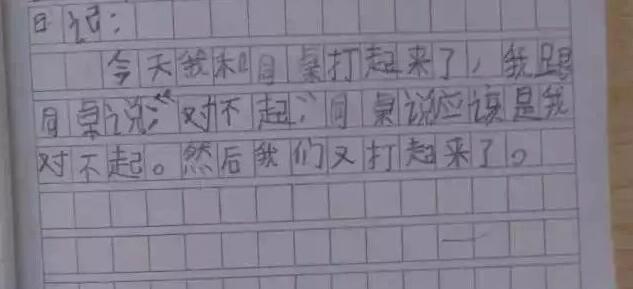 日记:
今天我和同桌打起来了，我跟
同桌说:“对不起”同桌说应该是我
对不起。然后我们又打起来了。